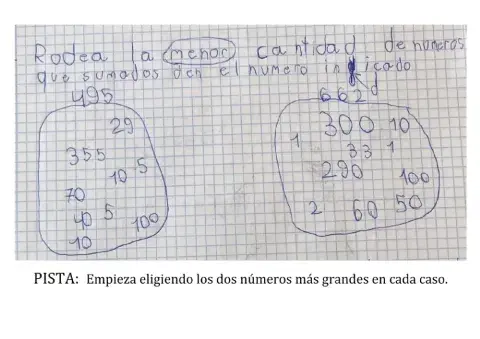 Rodea la menor cantidad de números
que sumados den el número indicado
495
662
29
355
10 5
70
40 5 100
10
300 10
1 33 1
290 100
2 60 50
PISTA: Empieza eligiendo los dos números más grandes en cada caso.